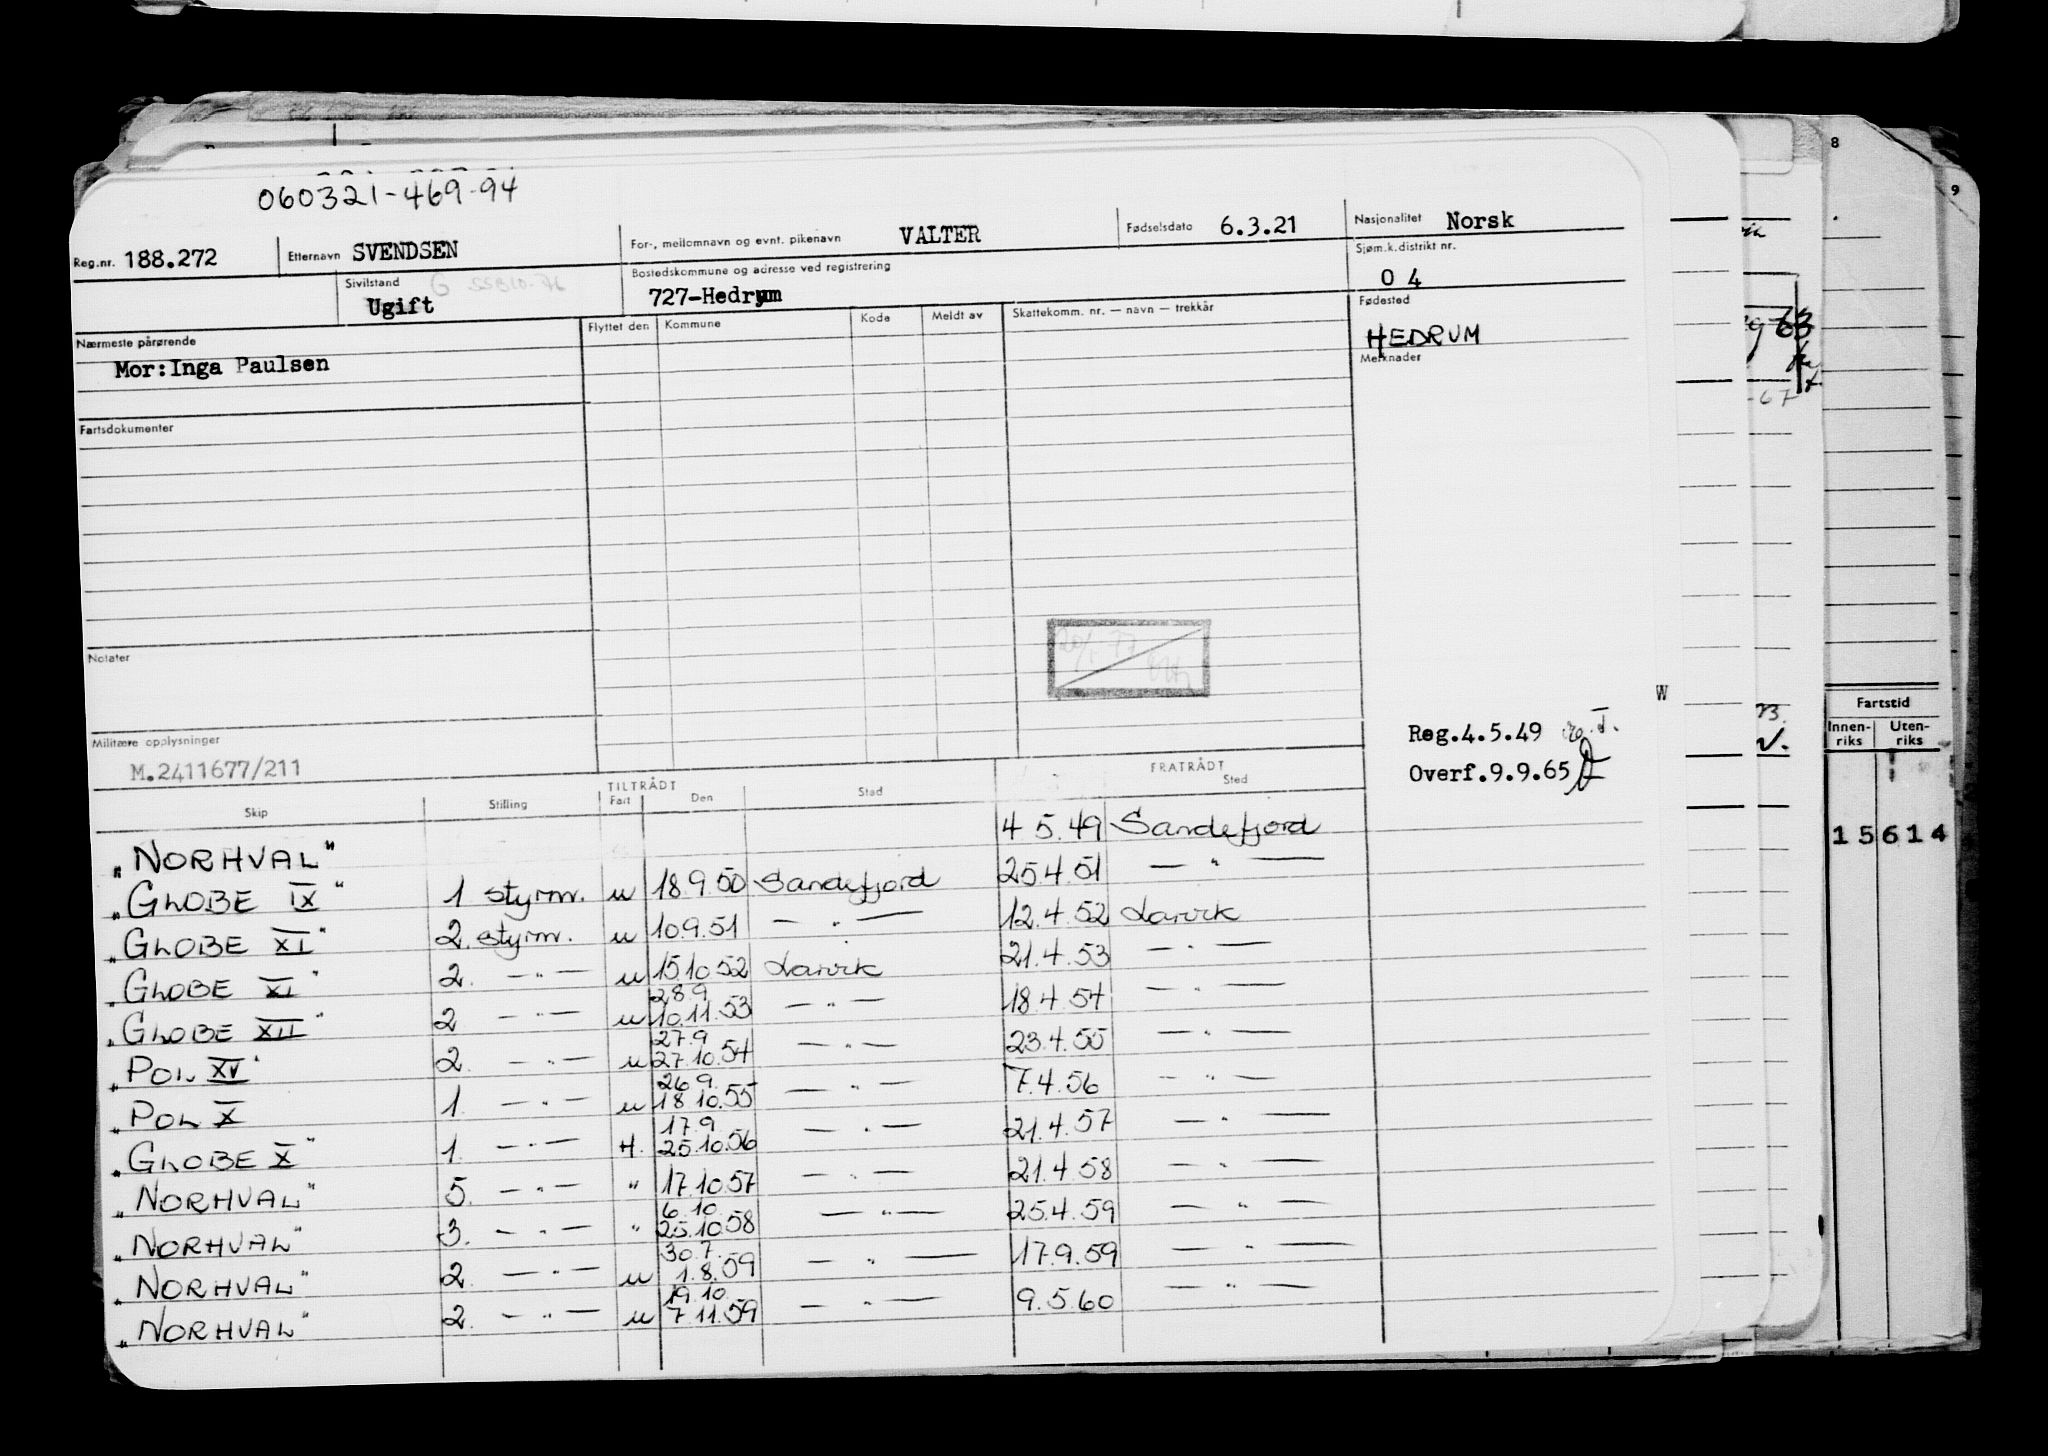 060321-469-94
Reg.nr. 188.272 Etternavn SVENDSEN For-, mellomnavn og evnt. pikenavn VALTER Fødselsdato 6.3.21 Nasjonalitet Norsk
Sivilstand Ugift Bostedskommune og adresse ved registrering 727-Hedrum Sjøm.k.distrikt nr. 04
Nærmeste pårørende Flyttet den Kommune Kode Meldt av Skattekomm. nr. — navn — trekkår Fødested HEDRUM
Mor:Inga Paulsen Merknader
Fartsdokumenter
Notater
Militære opplysninger
M.2411677/211
Reg.4.5.49
Overf.9.9.65
TILTRÅDT FRATRÅDT
Skip Stilling Fart Den Sted Sted
"NORHVAL" 4 5.49 Sandefjord
"GLOBE IX" 1 styrm. u 18.9.50 Sandefjord 25.4.51 — " —
"GLOBE XI" 2. styrm. u 10.9.51 — " — 12.4.52 Larvik
"GLOBE XI" 2. — " — u 15.10.52 Larvik 21.4.53 — " —
28.9
"GLOBE XII" 2 — " — u 10.11.53 — " — 18.4.54 — " —
27.9
"POL XV" 2. — " — u 27.10.54 — " — 23.4.55 — " —
26.9.
"POL X 1. — " — u 18.10.55 — " — 7.4.56 — " —
17.9
"GLOBE X" 1. — " — H. 25.10.56 — " — 21.4.57 — " —
"NORHVAL" 5. — " — " 17.10.57 — " — 21.4.58 — " —
6.10.
"NORHVAL" 3. — " — " 25.10.58 — " — 25.4.59 — " —
30.7.
"NORHVAL" 2. — " — u 1.8.59 — " — 17.9.59 — " —
19.10.
"NORHVAL" 2. — " — u 7.11.59 — " — 9.5.60 — " —
W
8
9
63
-67
Fartstid
Innen-riks Uten-riks
15614